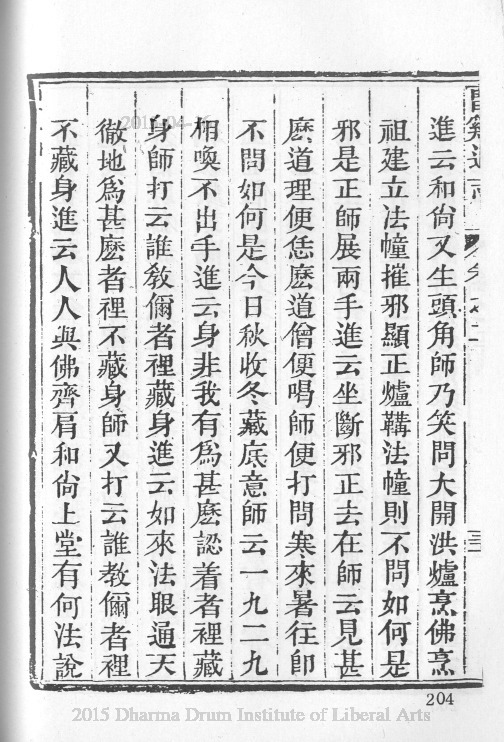 進云和尙又生頭角師乃笑問大開洪爐烹佛烹
祖建立法幢摧邪顯正爐鞲法幢則不問如何是
邪是正師展兩手進云坐斷邪正去在師云見甚
麽道理便恁麽道僧便喝師便打問寒來暑往卽
不問如何是今日秋收冬藏底意師云一九二九
相喚不出手進云身非我有爲甚麽認着者裡藏
身師打云誰敎儞者裡藏身進云如來法眼通天
徹地爲甚麽者裡不藏身師又打云誰教儞者裡
不藏身進云人人與佛齊肩和尙上堂有何法說
204
2015 Dharma Drum Institute of Liberal Arts